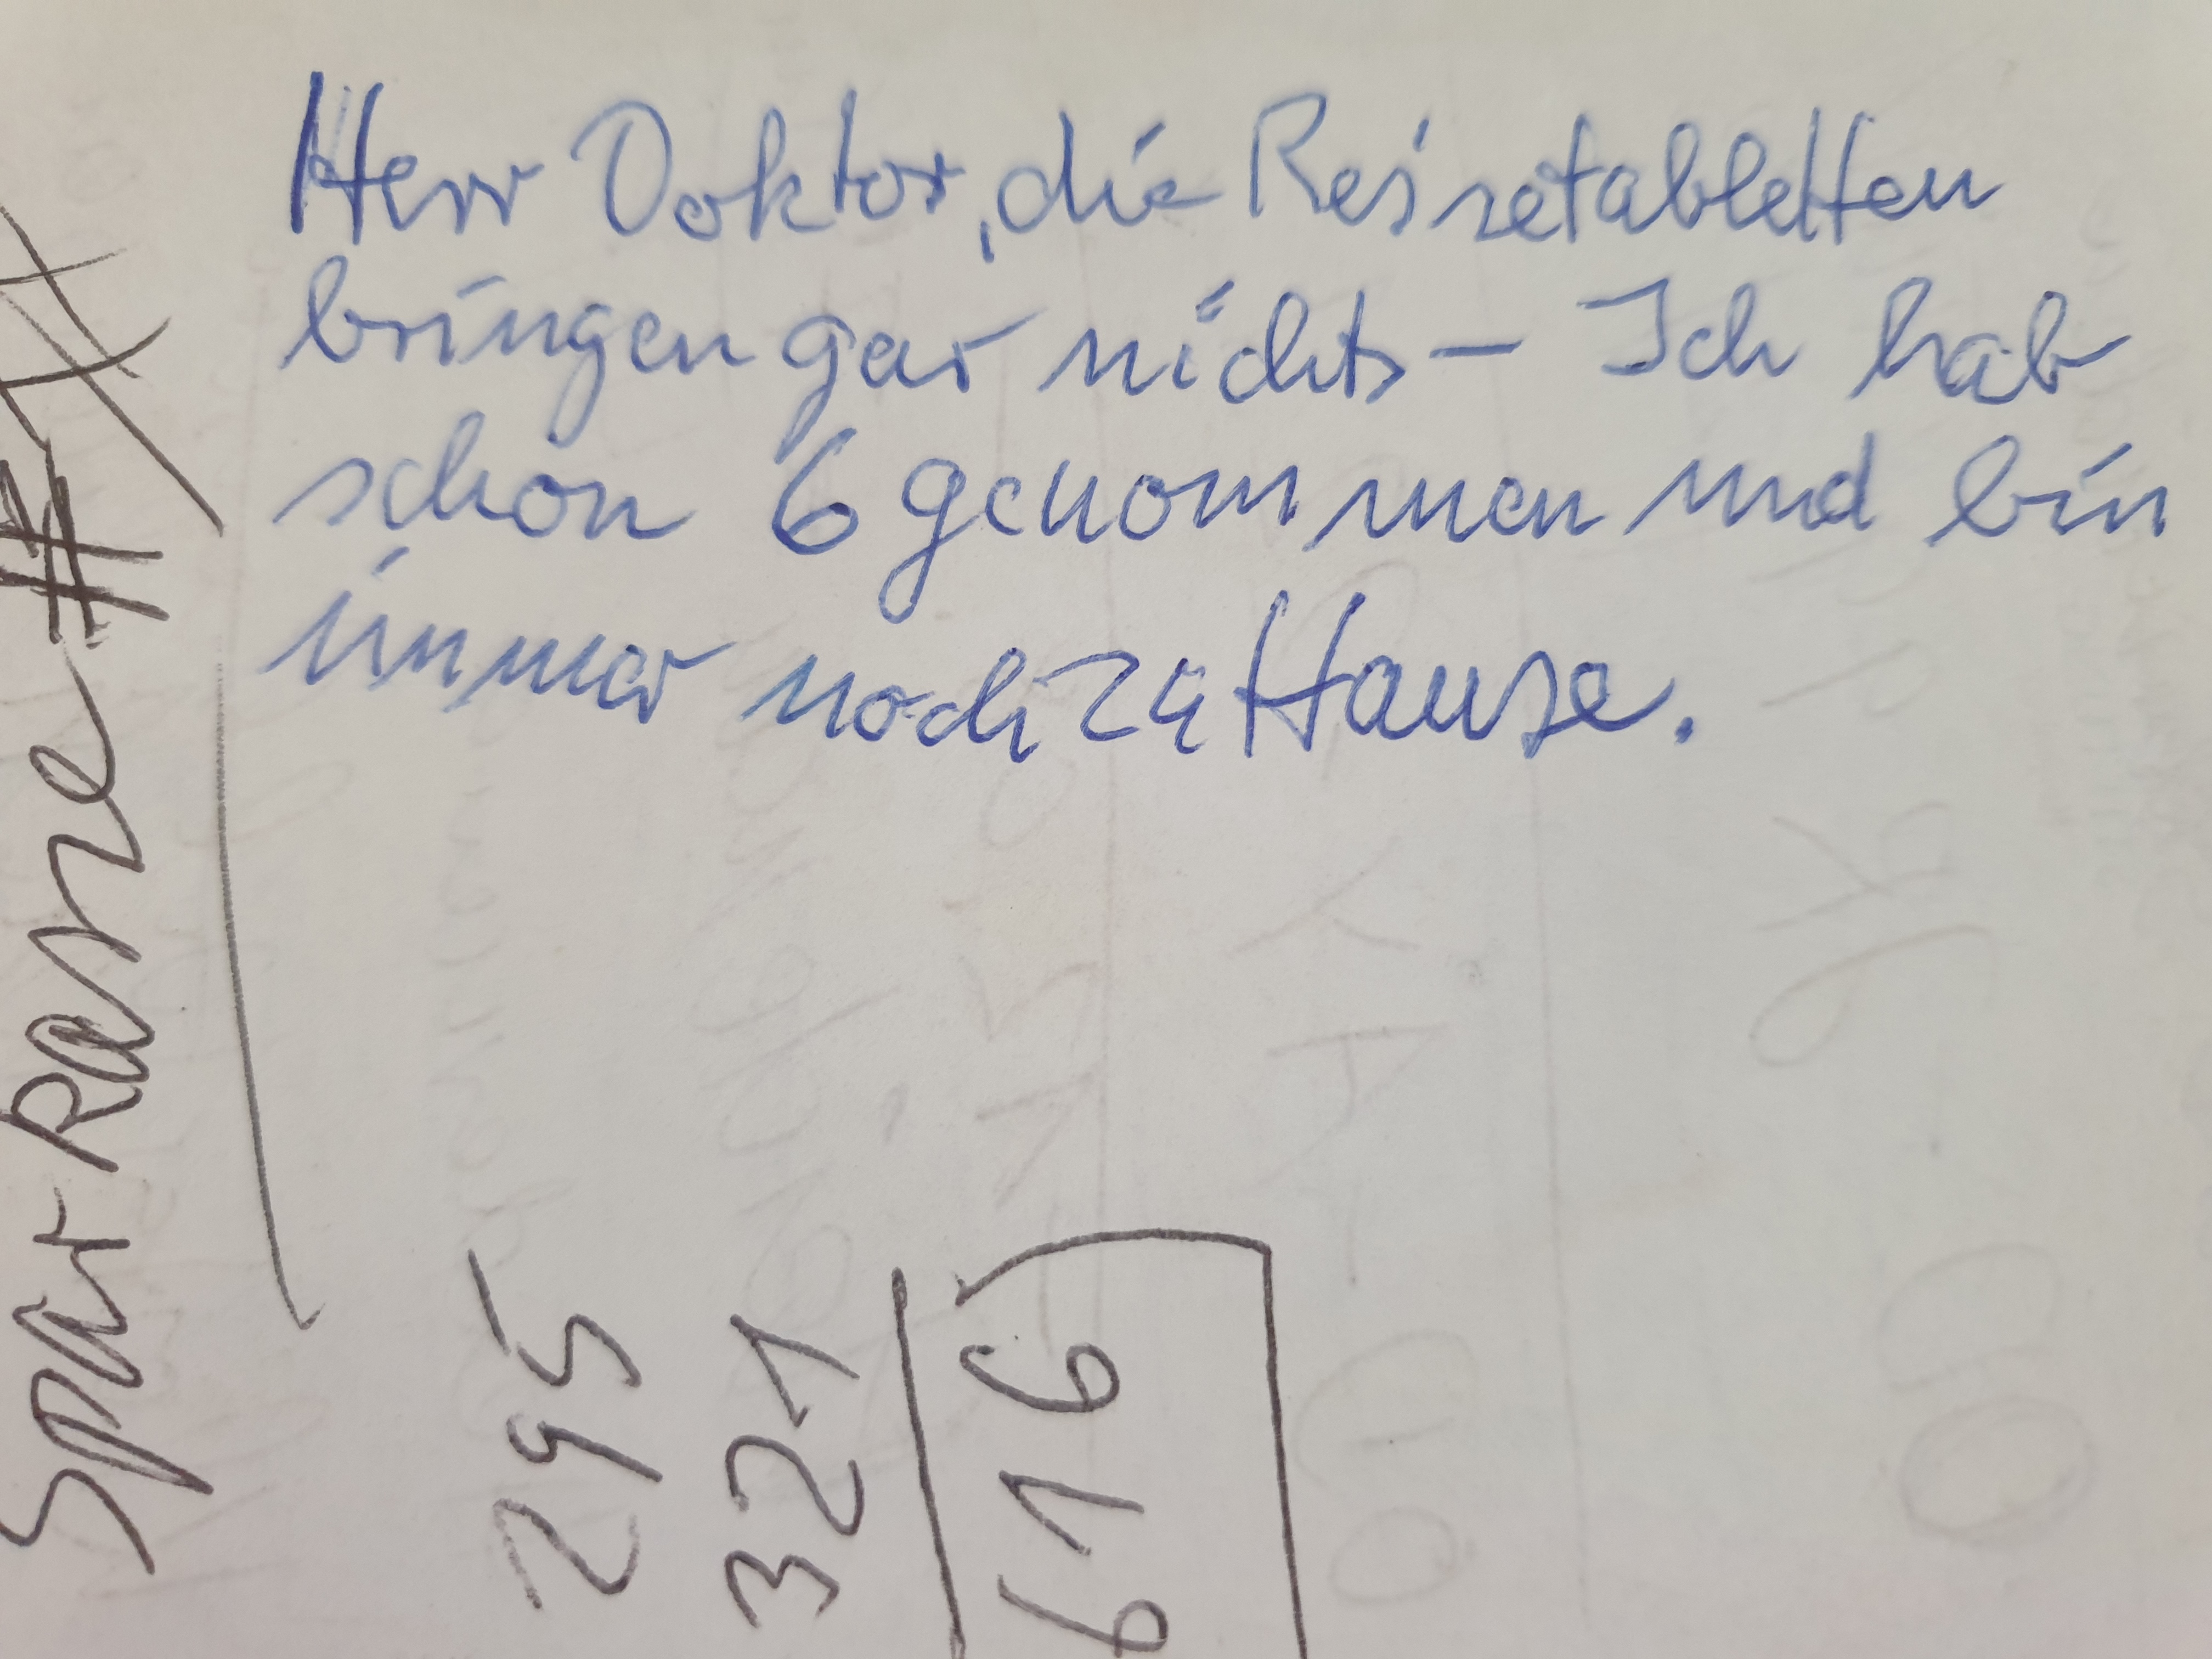 Herr Doktor, die Reisetabletten
bringen gar nichts – Ich hab
schon 6 genommen und bin
immer noch zu Hause.
Spar
295
321
616